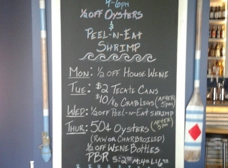 4-6pm
1/2 off Oysters
&
Peel-N-Eat
Shrimp
Mon: 1/2 off House Wine
Tue: $2 Tecate Cans
$10/lb Crab Legs (after 5pm)
Wed: 1/2 off Peel-N-Eat Shrimp
Thur: 50¢ Oysters (after 5pm)
(Raw or Charbroiled)
1/2 off Wine Bottles
PBR